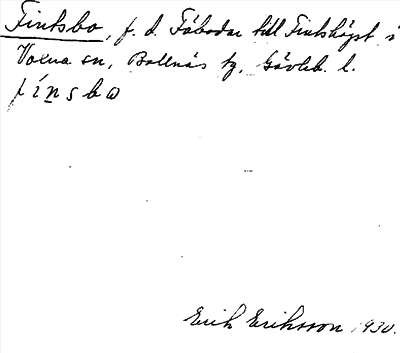 Finksbo, f. d. Fäbodar till Finkshögst i
Voxna sn, Bollnäs tg, Gävleb. l.
fínsbω
Erik Eriksson 1930.